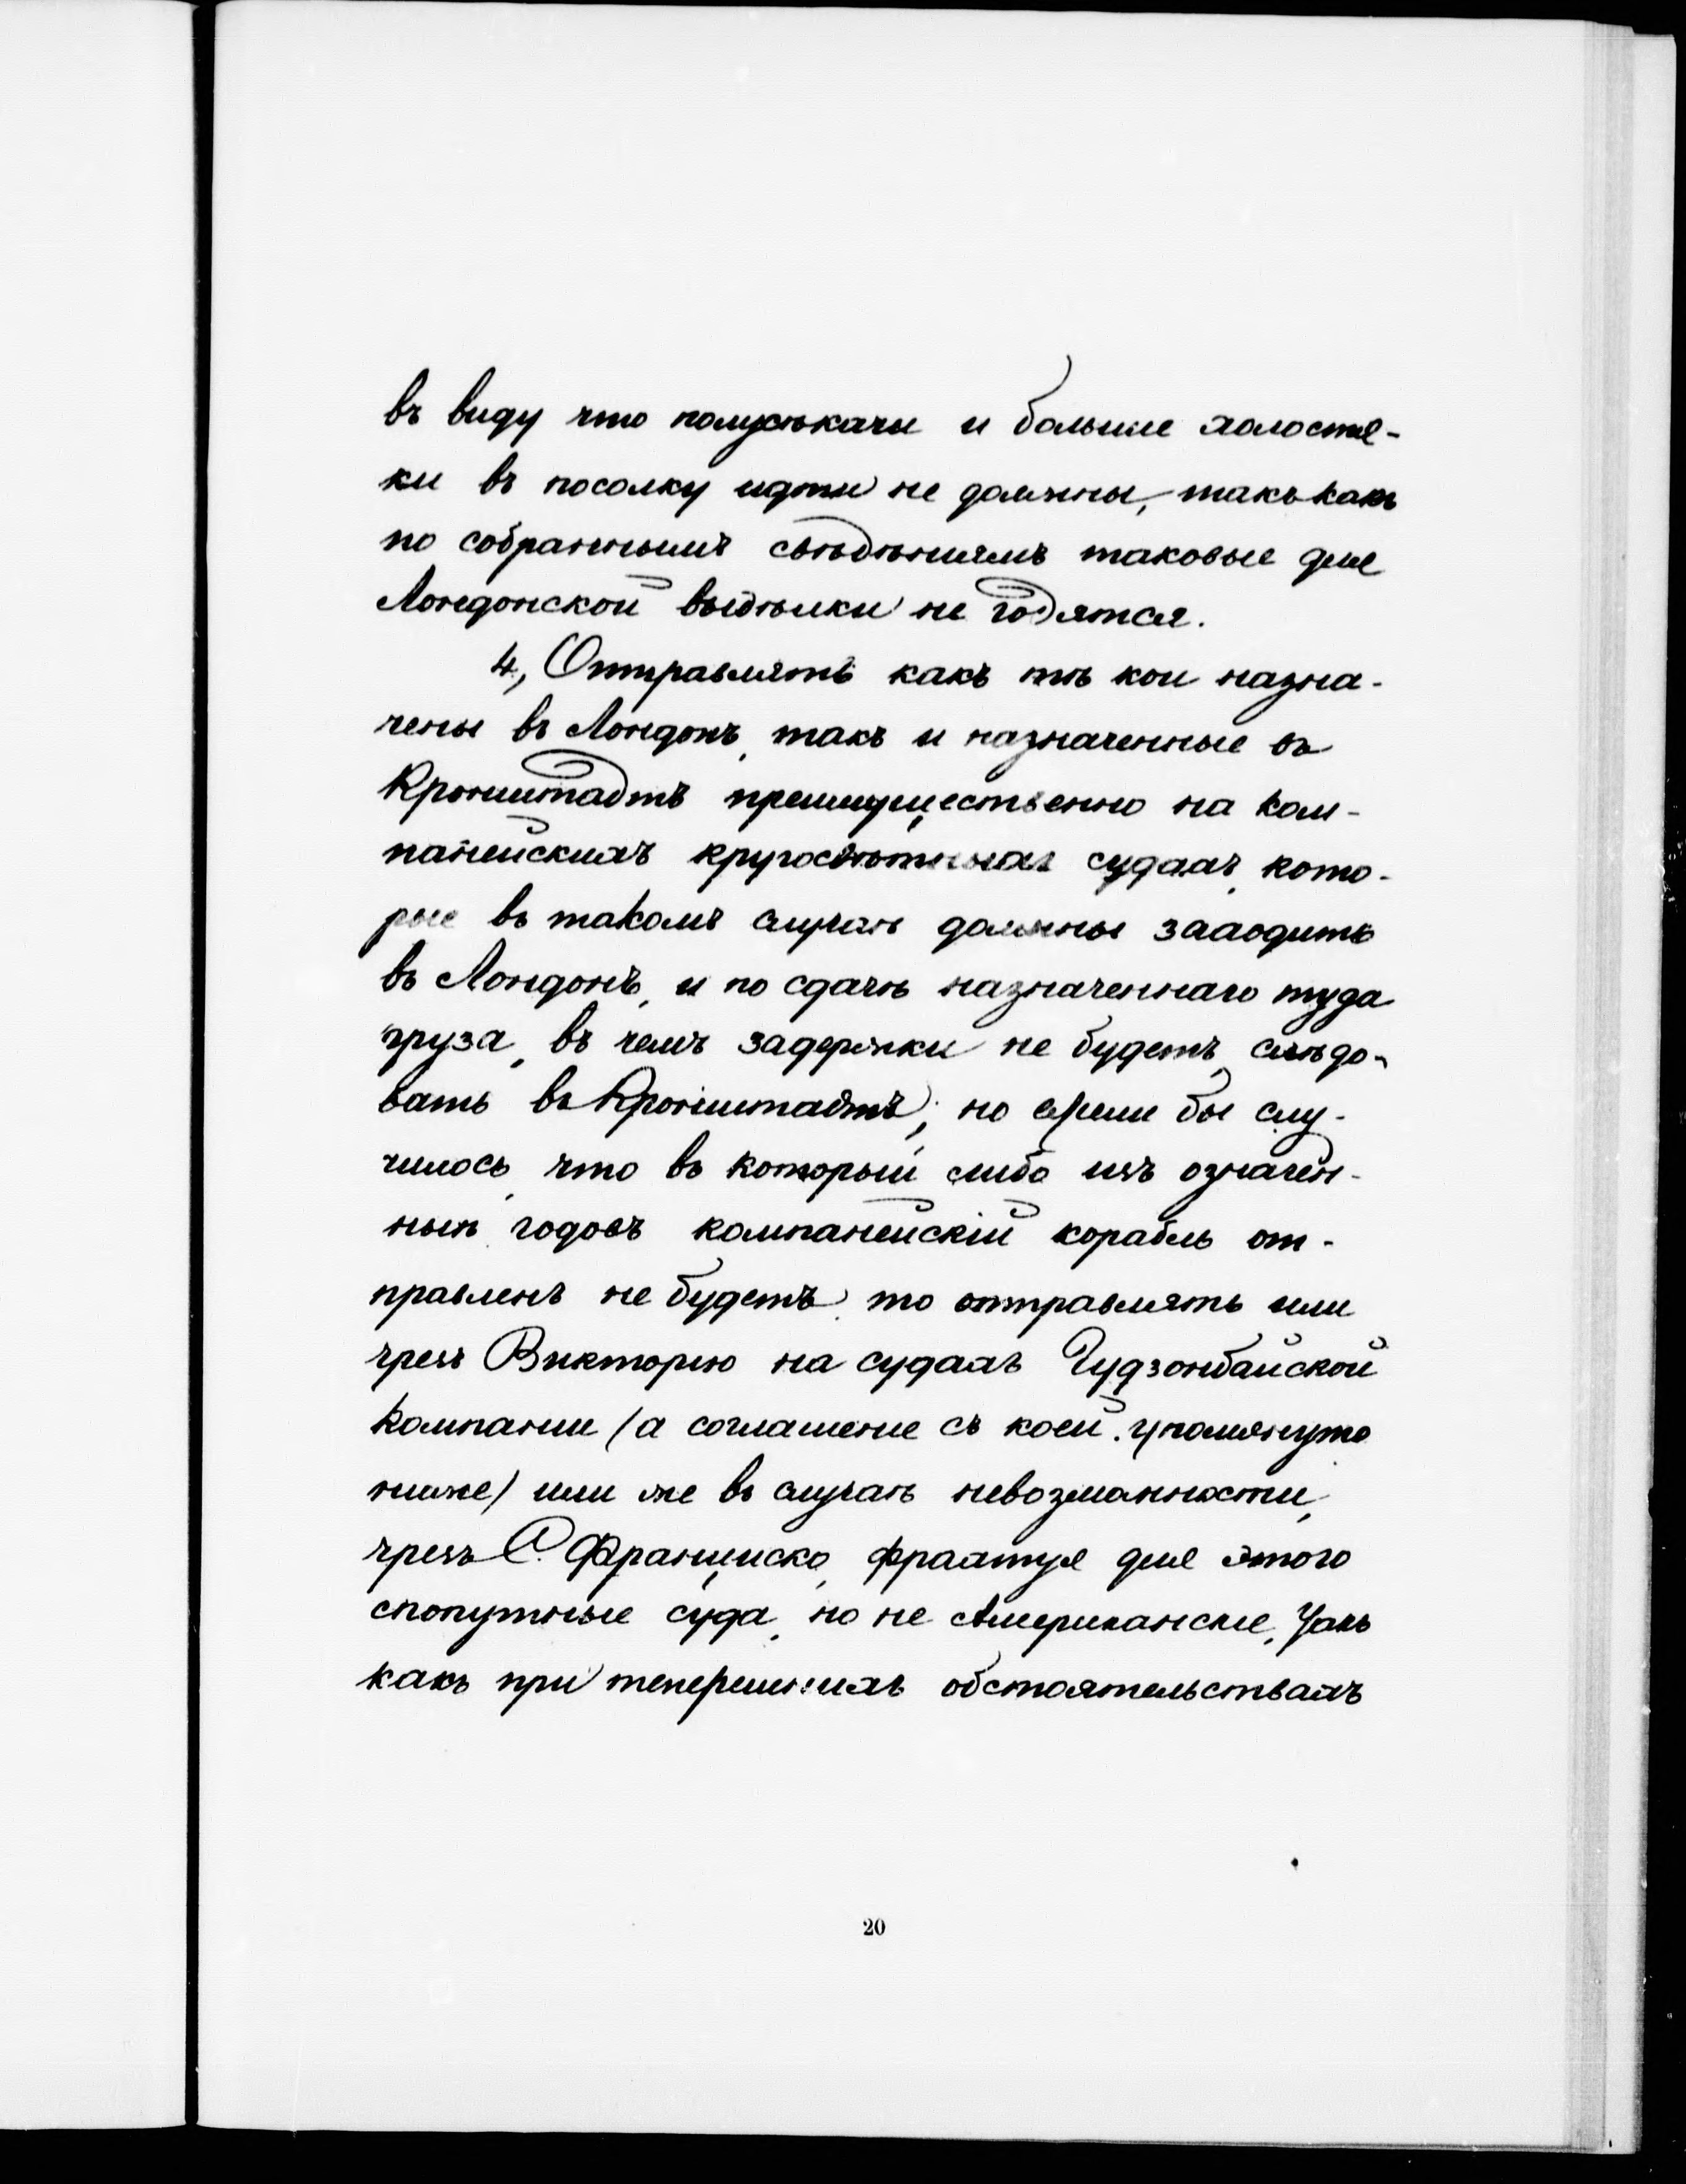 въ виду что полусѣкачи и больше холостя-
ки въ посолку идти не должны, такъ какъ
по собраннымъ свѣдѣніямъ таковые для
Лондонской выдѣлки не годятся.
4, Отправлять какъ тѣ кои назна-
чены въ Лондонъ, такъ и назначенные въ
Кронштадтъ преимущественно на ком-
панейскихъ кругосвѣтныхъ судахъ, кото-
рые въ такомъ случаѣ должны заходить
въ Лондонъ, и по сдачѣ назначеннаго туда
груза, въ чемъ задержки не будетъ, слѣдо-
вать въ Кронштадтъ; но ежели бы слу-
чилось, что въ который либо изъ означен-
ныхъ годовъ компанейскій корабль от-
правленъ не будетъ, то отправлять или
чрезъ Викторію на судахъ Гудзонбайской
компании (а соглашение съ коей упомянуто
ниже) или же въ случаѣ невозможности,
чрезъ С. Франциско, фрахтуя для этого
спопутные суда, но не Американские, такъ
какъ при теперешнихъ обстоятельствахъ
20